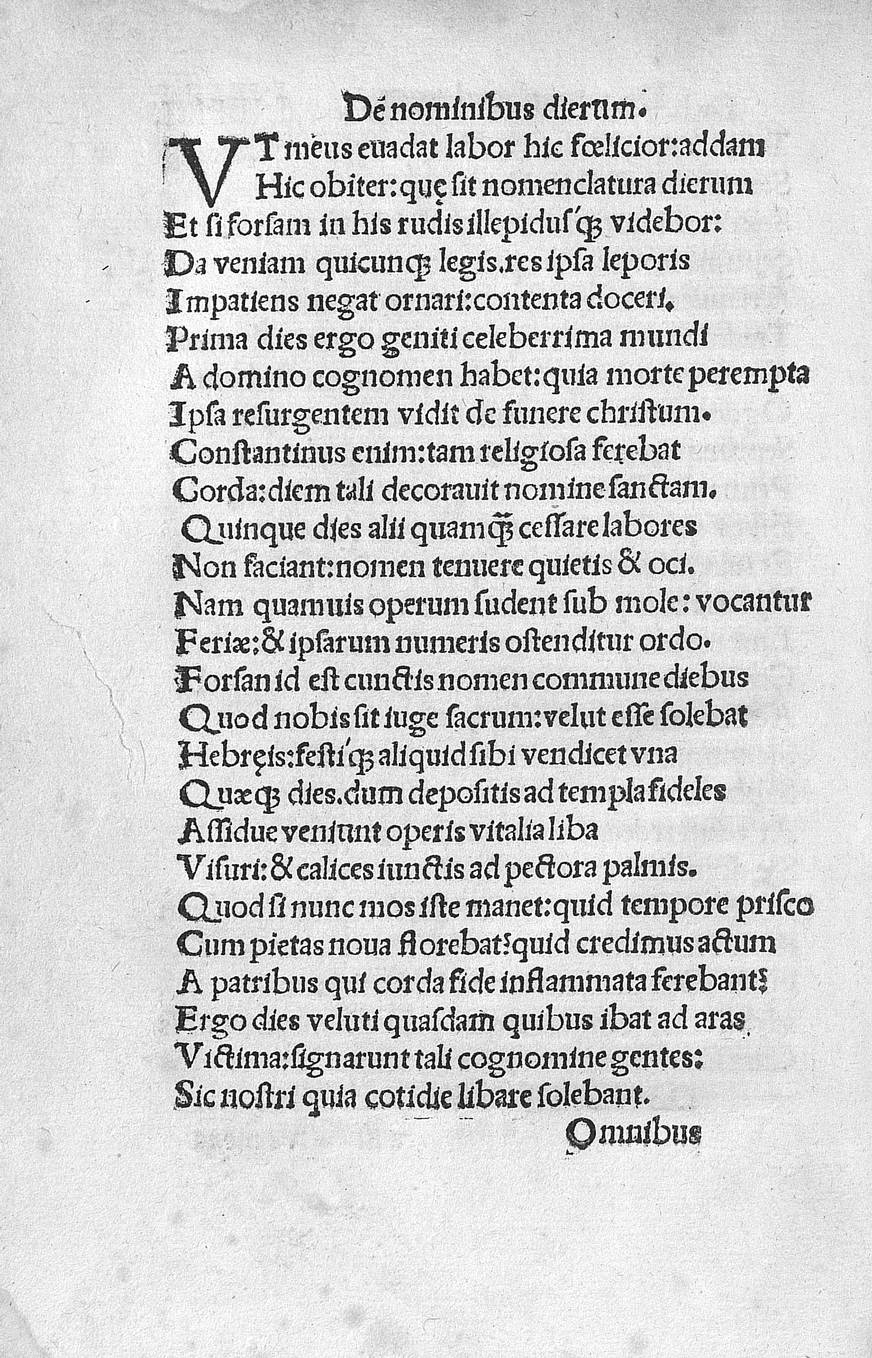 De nominibus dierum.
VT meus euadat labor hic fœlicior:addam
Hic obiter:quę sit nomenclatura dierum
Et si forsam in his rudis illepidus'qꝫ videbor:
Da veniam quicunqꝫ legis.res ipsa leporis
Impatiens negat ornari:contenta doceri.
Prima dies ergo geniti celeberrima mundi
A domino cognomen habet:quia morte perempta
Ipsa resurgentem vidit de funere christum.
Constantinus enim:tam religiosa ferebat
Corda:diem tali decorauit nomine sanctam.
Quinque dies alii quamqꝫ̃ cessare labores
Non faciant:nomen tenuere quietis & oci.
Nam quamuis operum sudent sub mole: vocantur
Feriæ:& ipsarum numeris ostenditur ordo.
Forsan id est cunctis nomen commune diebus
Quod nobis sit iuge sacrum:velut esse solebat
Hebręis:festi'qꝫ aliquid sibi vendicet vna
Quæqꝫ dies.dum depositis ad templa fideles
Assidue veniunt operis vitalia liba
Visuri:& calices iunctis ad pectora palmis.
Quod si nunc mos iste manet:quid tempore prisco
Cum pietas noua florebat?quid credimus actum
A patribus qui corda fide inflammata ferebant?
Ergo dies veluti quasdam quibus ibat ad aras
Victima:signarunt tali cognomine gentes:
Sic nostri quia cotidie libare solebant.
Omnibus